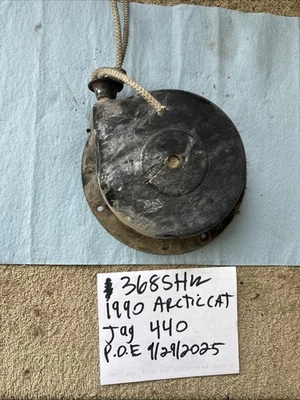 368SHW
1990 ARCTIC CAT
Jag 440
P.O.E 9/29/2025